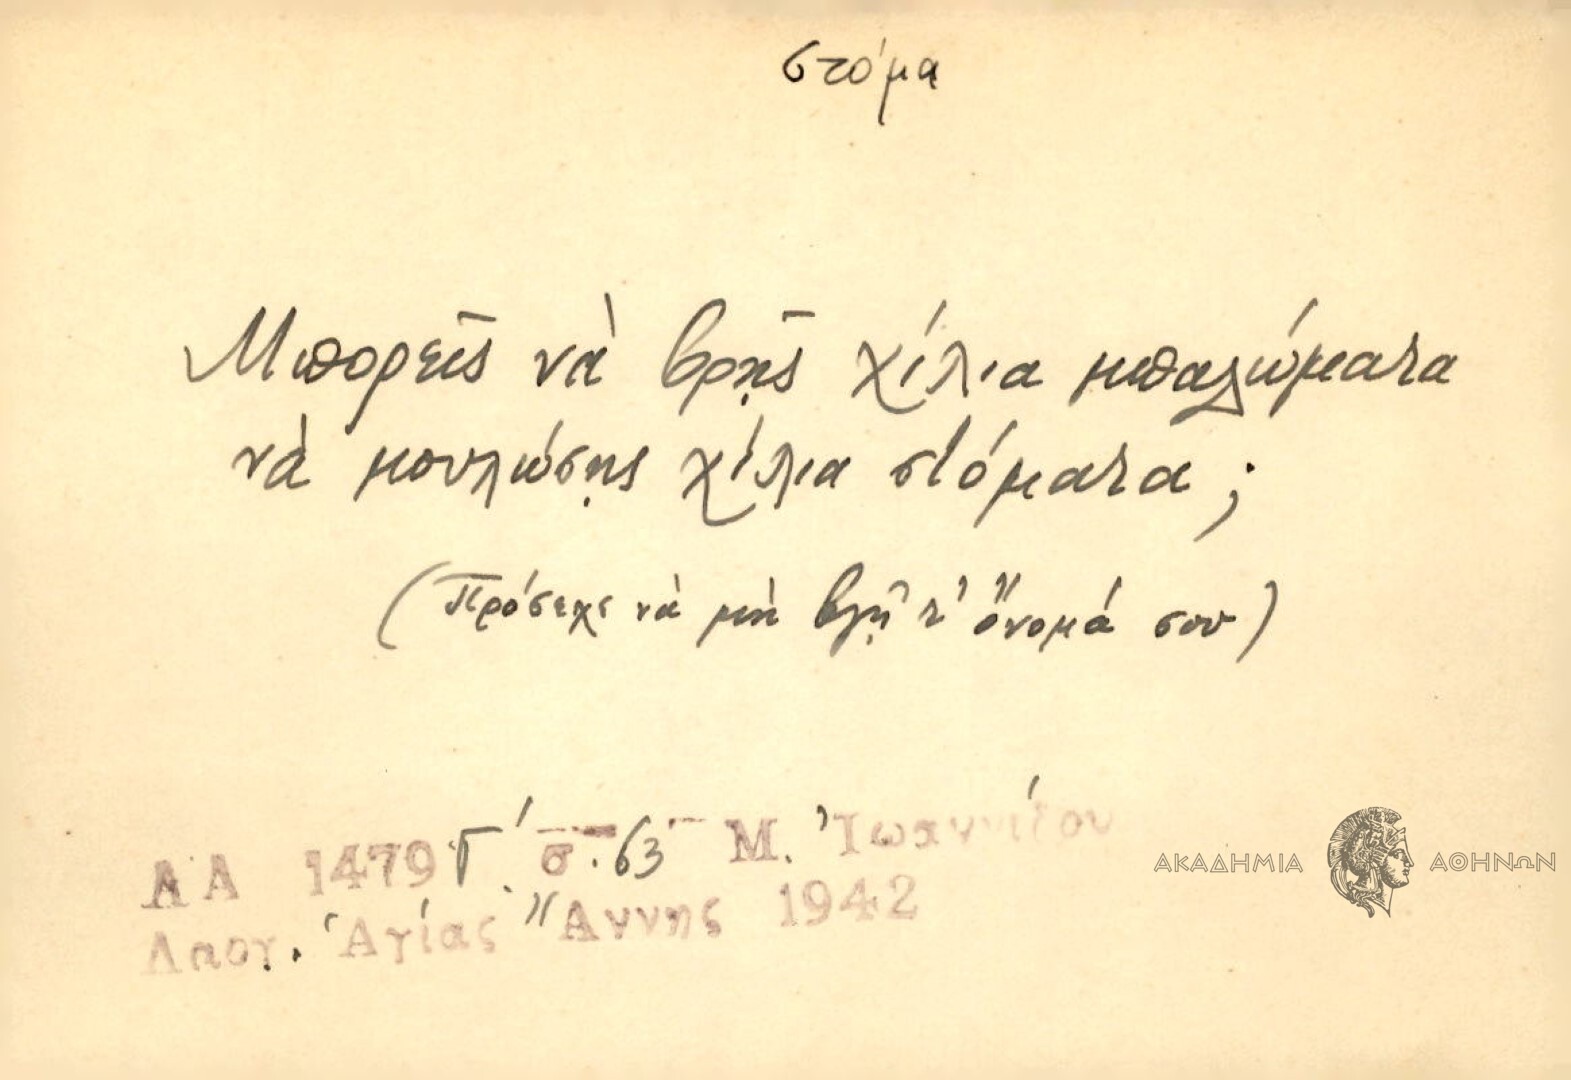 στόμα
Μπορεῖς νὰ βρῇς χίλια μπαλώματα
νὰ μουλώσῃς χίλια στόματα;
(Πρόσεχε νὰ μὴ βγῇ τ' ὄνομά σου)
ΑΑ 1479 Γ΄. σ. 63 Μ. Ἰωαννίδου
Λαογ. Ἁγίας Ἄννης 1942
ΑΚΑΔΗΜΙΑ ΑΘΗΝΩΝ